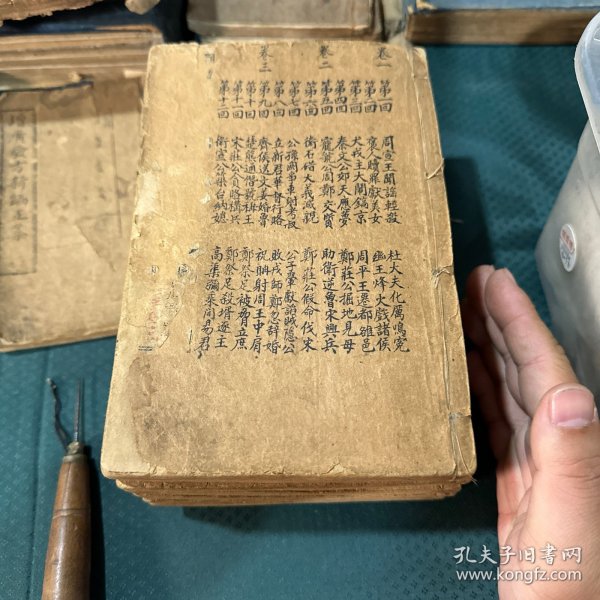 卷一 第一回 周宣王聞謠輕殺 杜大夫化厲鳴冤
第二回 褒人贖罪獻美女 幽王烽火戲諸侯
第三回 犬戎主大鬧鎬京 周平王遷都雒邑
卷二 第四回 秦文公郊天應夢 鄭莊公掘地見母
第五回 寵虢公周鄭交質 助衛逆魯宋興兵
第六回 衛石碏大義滅親 鄭莊公假命伐宋
第七回 公孫閼爭車射考叔 公子翬獻諂賊隱公
第八回 立新君華督行賂 敗戎師鄭忽辭婚
卷三 第九回 齊侯送文姜婚魯 祝聃射周王中肩
第十回 楚熊通僭號稱王 鄭祭足被脅立庶
第十一回 宋莊公貪賂構兵 鄭祭足殺婿逐主
第十二回 衛宣公築台納媳 高渠彌乘間易君
孔夫子旧书网
www.kongfz.com